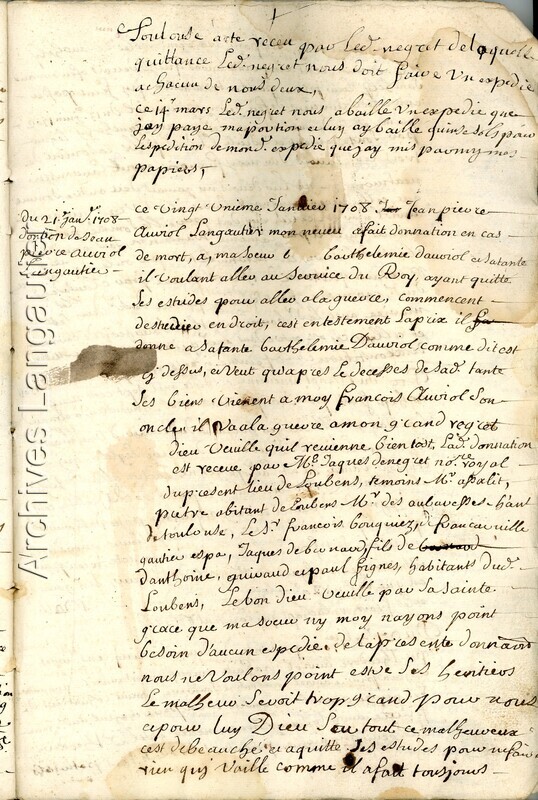 Toulouse acte receu par Led. negret de laquelle
quittance Led. negret nous doit faire un expedie
a chacun de nous deux,
ce 14e mars Led. negret nous a baille un expedie que
jay paye ma portion et luy ay baille quinze sols pour
Lespedition de mond. expedie que jay mis parmy mes
papiers,
du 21e janvr 1708
donnon de Jean
pierre auviol
Langautier
ce vingt unieme Janvier 1708 Jean pierre
auviol Langautier mon neveu a fait donnation en cas
de mort, a, ma soeur barthelemie dauviol sa tante
il voulant aller au service du Roy, ayant quitte
ses estudes pour aller a la guerre, commencent
destudier en droit, cest entestement La prix il
donne a sa tante barthelemie Dauviol comme dit est
cy dessus, et veut quapres le decesses de sad. tante
ses biens vienent a moy francois Auviol son
oncle, il va a la guerre a mon grand regret
dieu veuille quil revienne bien tost, Lad. donnation
est receue par Me. Jaques denegret nore. royal
du present lieu de Loubens, temoins Mr. assalit,
pretre abitant de Loubens Mr. des
de toulouse, Le Sr. francois bouquiez, de francarville
gautier espa, Jaques de bernard, fils de
danthoine, guiraud et paul signes, habitants dud.
Loubens, Le bon dieu veuille par sa sainte
grace que ma soeur ny moy nayons point
besoin daucun espedie de la presente donnaon
nous ne voulons point estre ses heritiers
Le malheur seroit trop grand pour nous
et pour luy Dieu sur tout ce malheureux
cest debauche et a quitte ses estudes pour ne faire
rien qui vaille comme il a fait tousjours
Archives Langautier